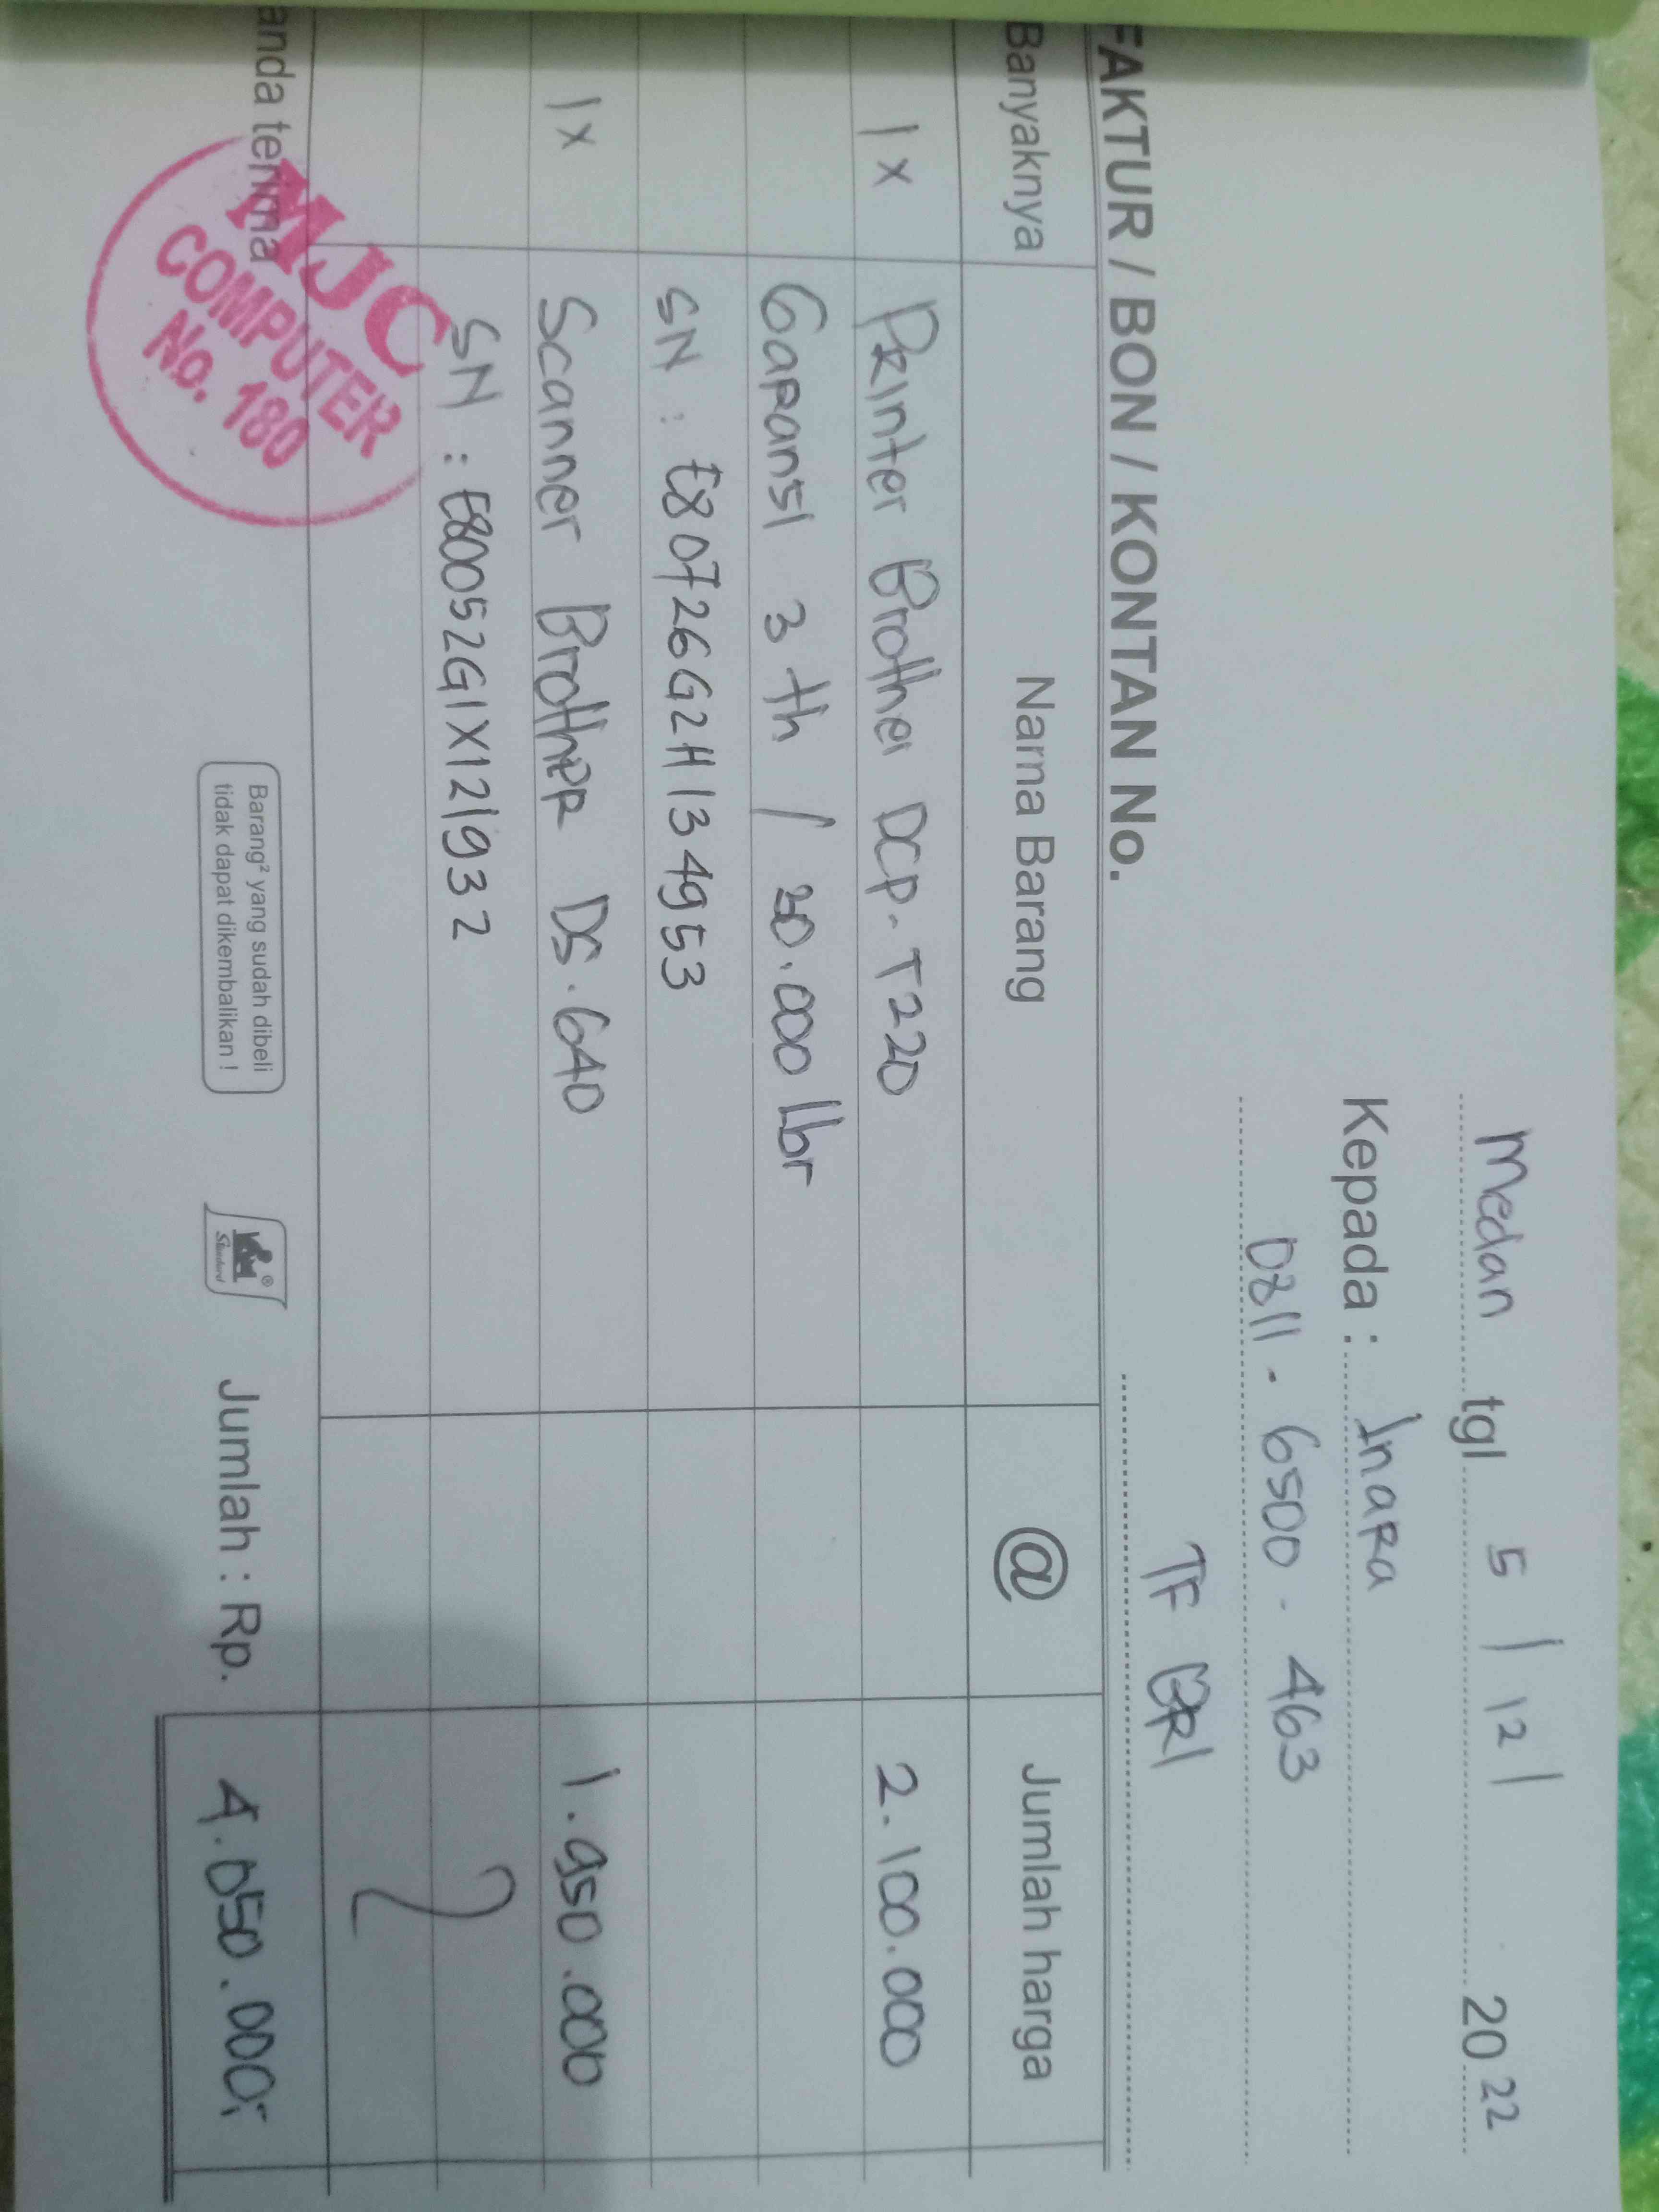 Medan tgl 5 / 12 / 2022
Kepada : Inara
0811 - 6500 - 463
TF BRI
FAKTUR / BON / KONTAN No.
Banyaknya Nama Barang @ Jumlah harga
1 x Printer Brother DCP-T220 2.100.000
Garansi 3 th / 30.000 lbr
SN : E80726G2H134953
1 x Scanner Brother DS.640 1.950.000
SN : E80052G1X121932
anda terima
MJC
COMPUTER
No. 180
Barang² yang sudah dibeli
tidak dapat dikembalikan !
Standard
Jumlah : Rp. 4.050.000,-